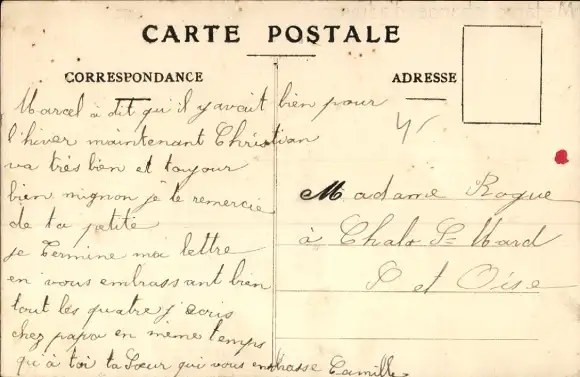 CARTE POSTALE
CORRESPONDANCE
ADRESSE
Marcel à dit qu'il y avait bien pour
l'hiver maintenant Christian
va très bien et toujour
bien mignon je te remercie
de ta petite
je termine ma lettre
en vous embrassant bien
tout les quatre j'écris
chez papa en même temps
qu'à toi ta Sœur qui vous embrasse Camille
Madame Rogue
à Chalo St Mard
S et Oise